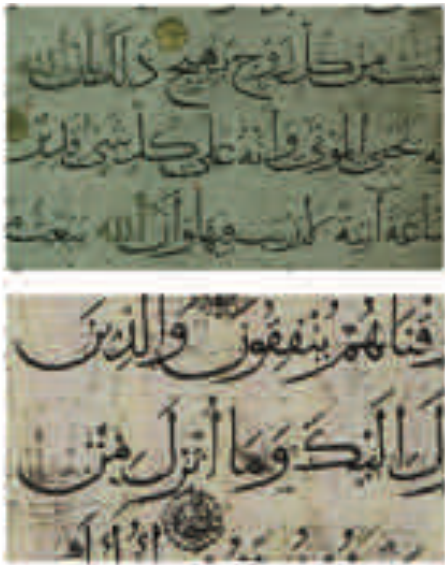 من كل زوج بهيج ذلك بأن الله
يحي الموتى وأنه على كل شئ قدير
آتية لا ريب فيها وأن الله يبعث
قناهم ينفقون والذين
إليك وما أنزل من